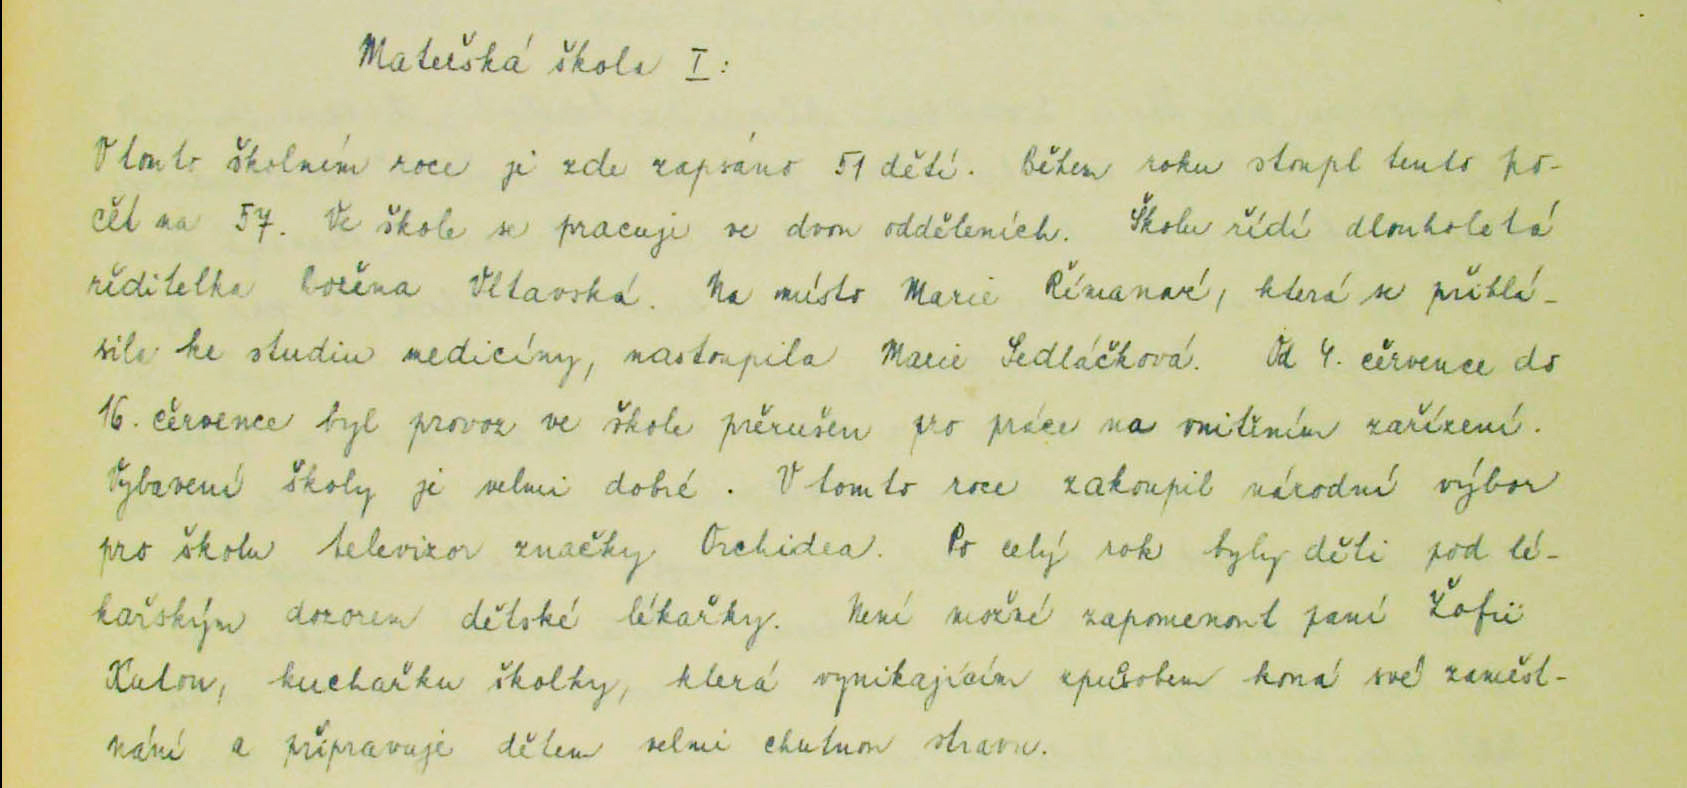 Mateřská škola I:
V tomto školním roce je zde zapsáno 51 dětí. Během roku stoupl tento po-
čet na 57. Ve škole se pracuje ve dvou odděleních. Školu řídí dlouholetá
ředitelka Božena Vltavská. Na místo Marie Římanové, která se přihlá-
sila ke studiu medicíny, nastoupila Marie Sedláčková. Od 4. července do
16. července byl provoz ve škole přerušen pro práce na vnitřním zařízení.
Vybavení školy je velmi dobré. V tomto roce zakoupil národní výbor
pro školu televizor značky Orchidea. Po celý rok byly děti pod lé-
kařským dozorem dětské lékařky. Není možné zapomenout paní Žofii
kuchařku školky, která vynikajícím způsobem koná své zaměst-
nání a připravuje dětem velmi chutnou stravu.